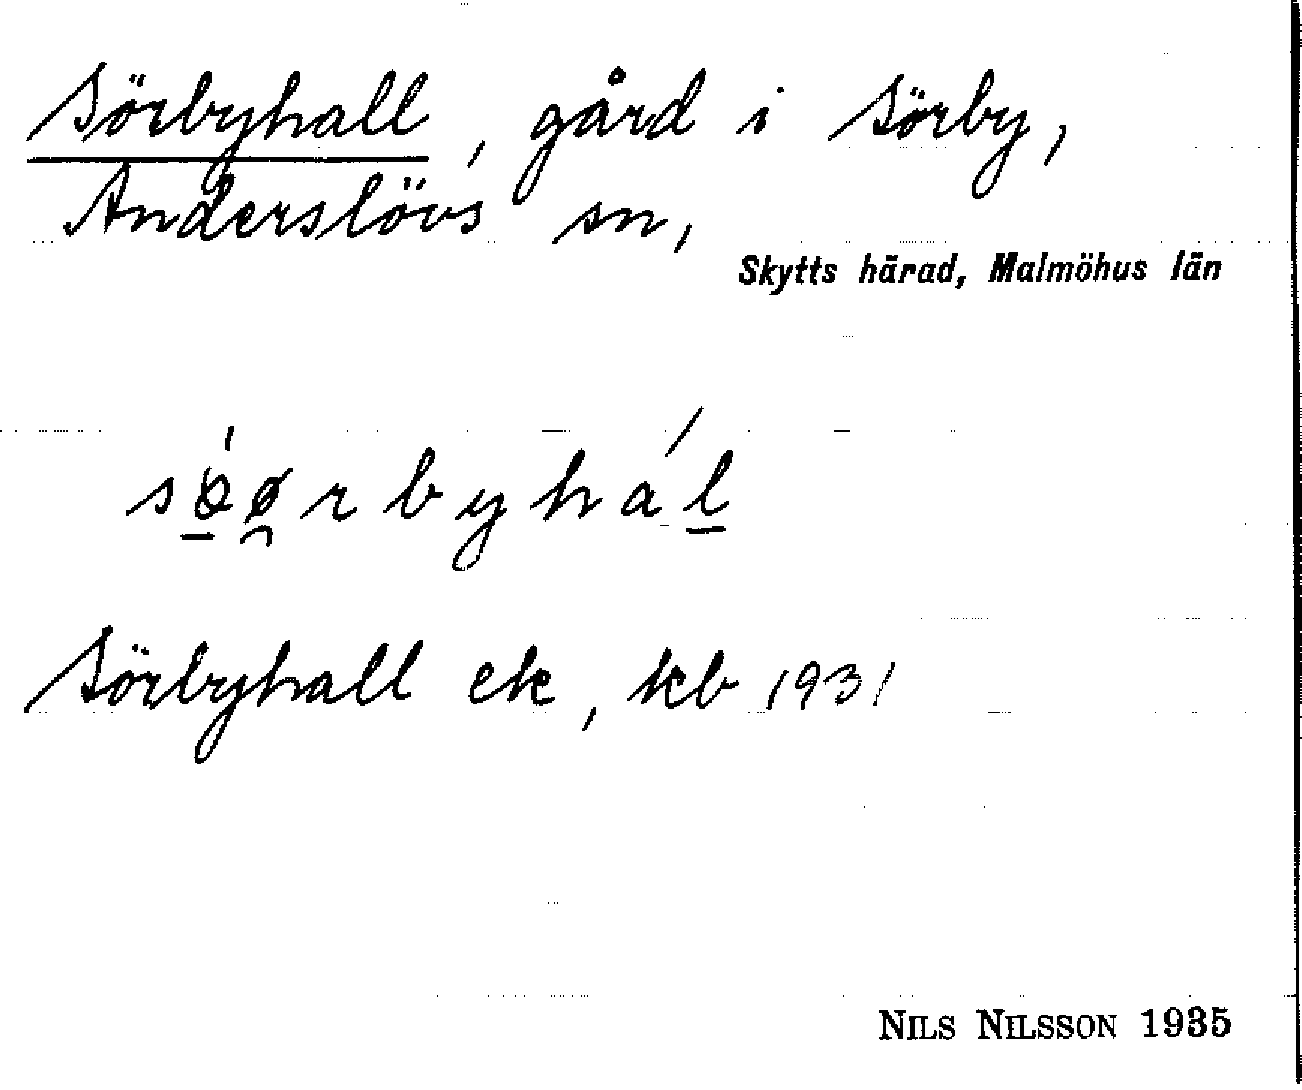 Sörbyhall, gård i Sörby,
Anderslövs sn,
Skytts härad, Malmöhus län
sö̀ø̯rbyhál̲
Sörbyhall ek, kb 1931
NILS NILSSON 1935